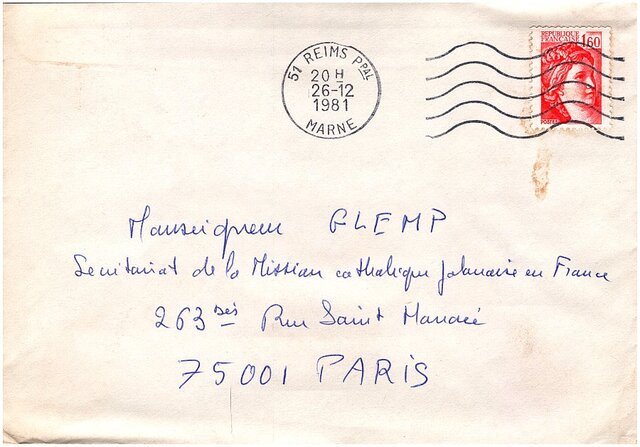 51 REIMS PPAL
20 H
26-12
1981
MARNE
REPUBLIQUE
FRANÇAISE 1,60
POSTES
Monseigneur GLEMP
Secrétariat de la Mission catholique polonaise en France
263 bis Rue Saint Honoré
75001 PARIS